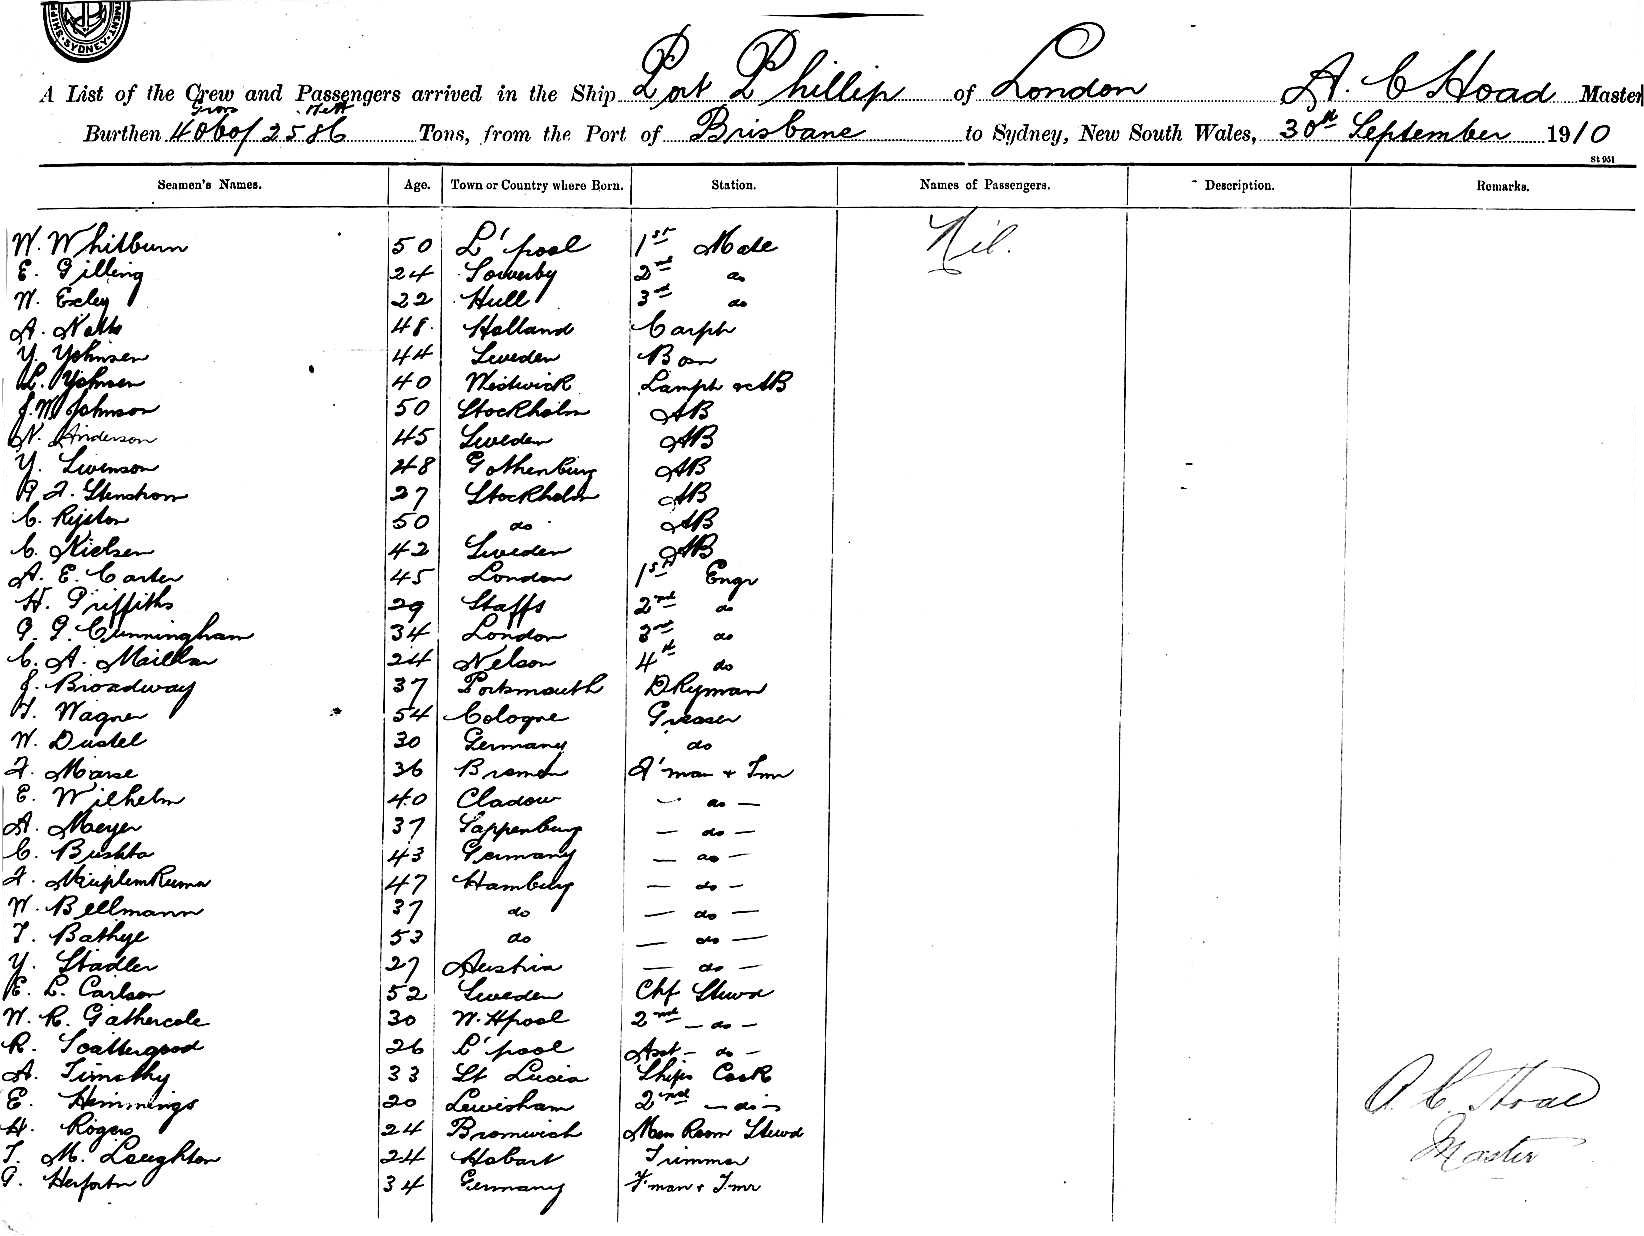 SYDNEY
A List of the Crew and Passengers arrived in the Ship Port Phillip of London A. C Hoad Master
Gross Nett
Burthen 4060/2586 Tons, from the Port of Brisbane to Sydney, New South Wales, 30th September 1910
St 951
Seamen's Names. Age. Town or Country where Born. Station. Names of Passengers. Description. Remarks.
W. Whitburn 50 L'pool 1st Mate Nil.
E. Gilling 24 Sowerby 2nd do
W. Exley 22 Hull 3rd do
A. 48 Holland Carptr
Y. Yohnsen 44 Sweden Bosn
L. Yohnsen 40 Lamps & AB
J. W Johnson 50 Stockholm AB
N. Anderson 45 Sweden AB
Y. Swenson 48 Gothenburg AB
27 Stockholm AB
C. 50 do AB
C. Nielsen 42 Sweden AB
A. E. Carter 45 London 1st Engr
H. Griffiths 29 Staffs 2nd do
G. G. Cunningham 34 London 3rd do
C. A. 24 Nelson 4th do
J. Broadway 37 Portsmouth DKyman
Wagner 54 Cologne Greaser
W. Dustel 30 Germany do
F. 36 Bremen F'man + Tmr
E. Wilhelm 40 Cladow — do —
A. Meyer 37 — do —
C. 43 Germany — do —
F. 47 Hamburg — do —
W. Bellmann 37 do — do —
T. Bathye 53 do — do —
Y. Stadler 27 Austria — do —
E. L. Carlson 52 Sweden Chf Stewd
W. R. Gathercole 30 W. H'pool 2nd — do —
R. Scattergood 26 L'pool Asst — do —
A. Timothy 33 St Lucia Ships Cook
E. Hemmings 20 Lewisham 2nd — do —
H. Rogers 24 Bromwich Mess Room Stewd
T. M. Laughton 24 Hobart Trimmer
G. 34 Germany F'man & Tmr
A. C. Hoad
Master